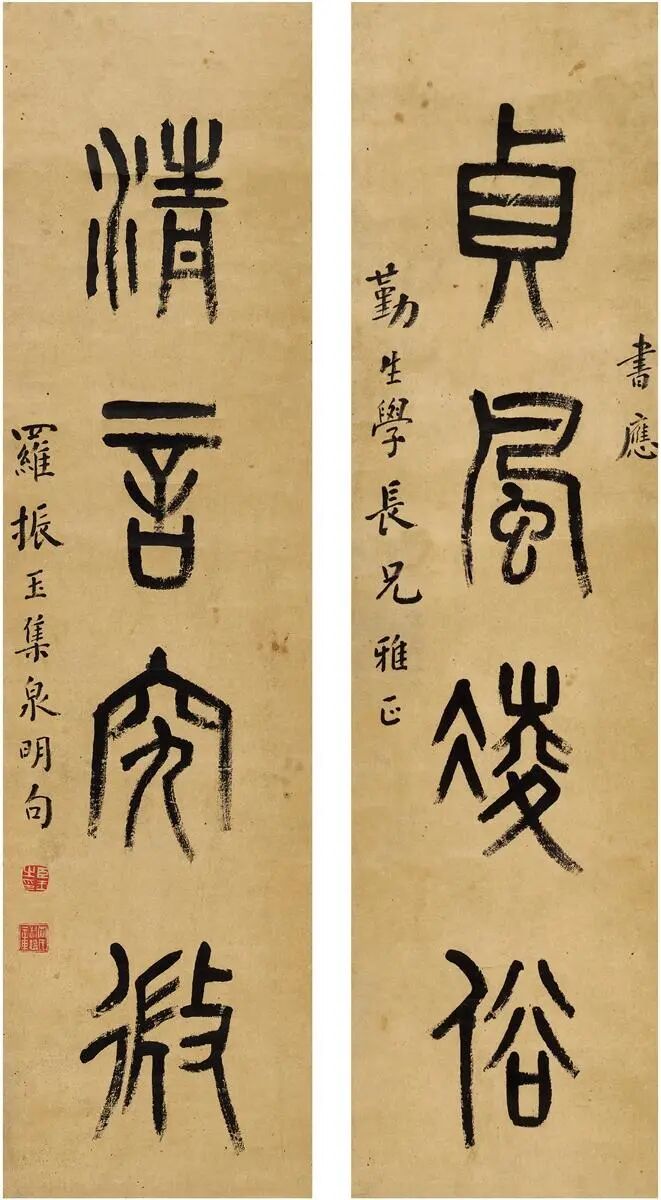 書應
貞風凌俗
勤生學長兄雅正
清言究微
羅振玉集泉明句